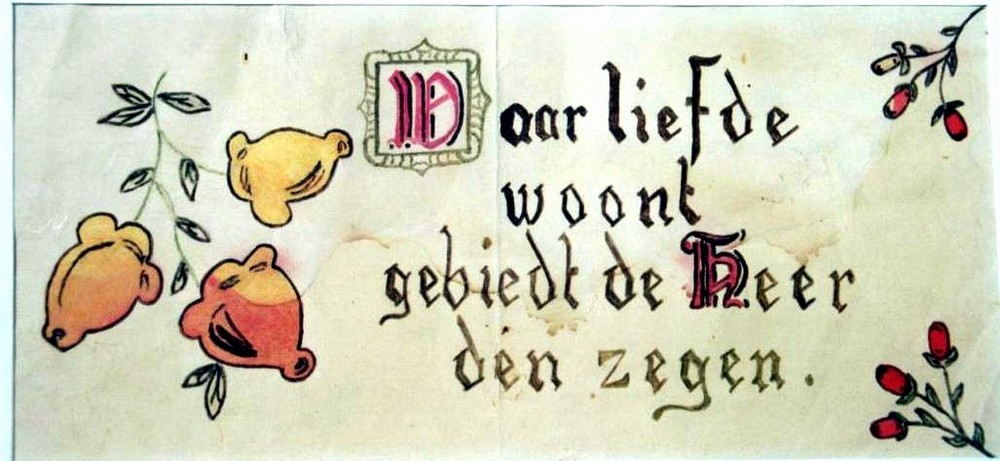 Waar liefde
woont
gebiedt de Heer
den zegen.